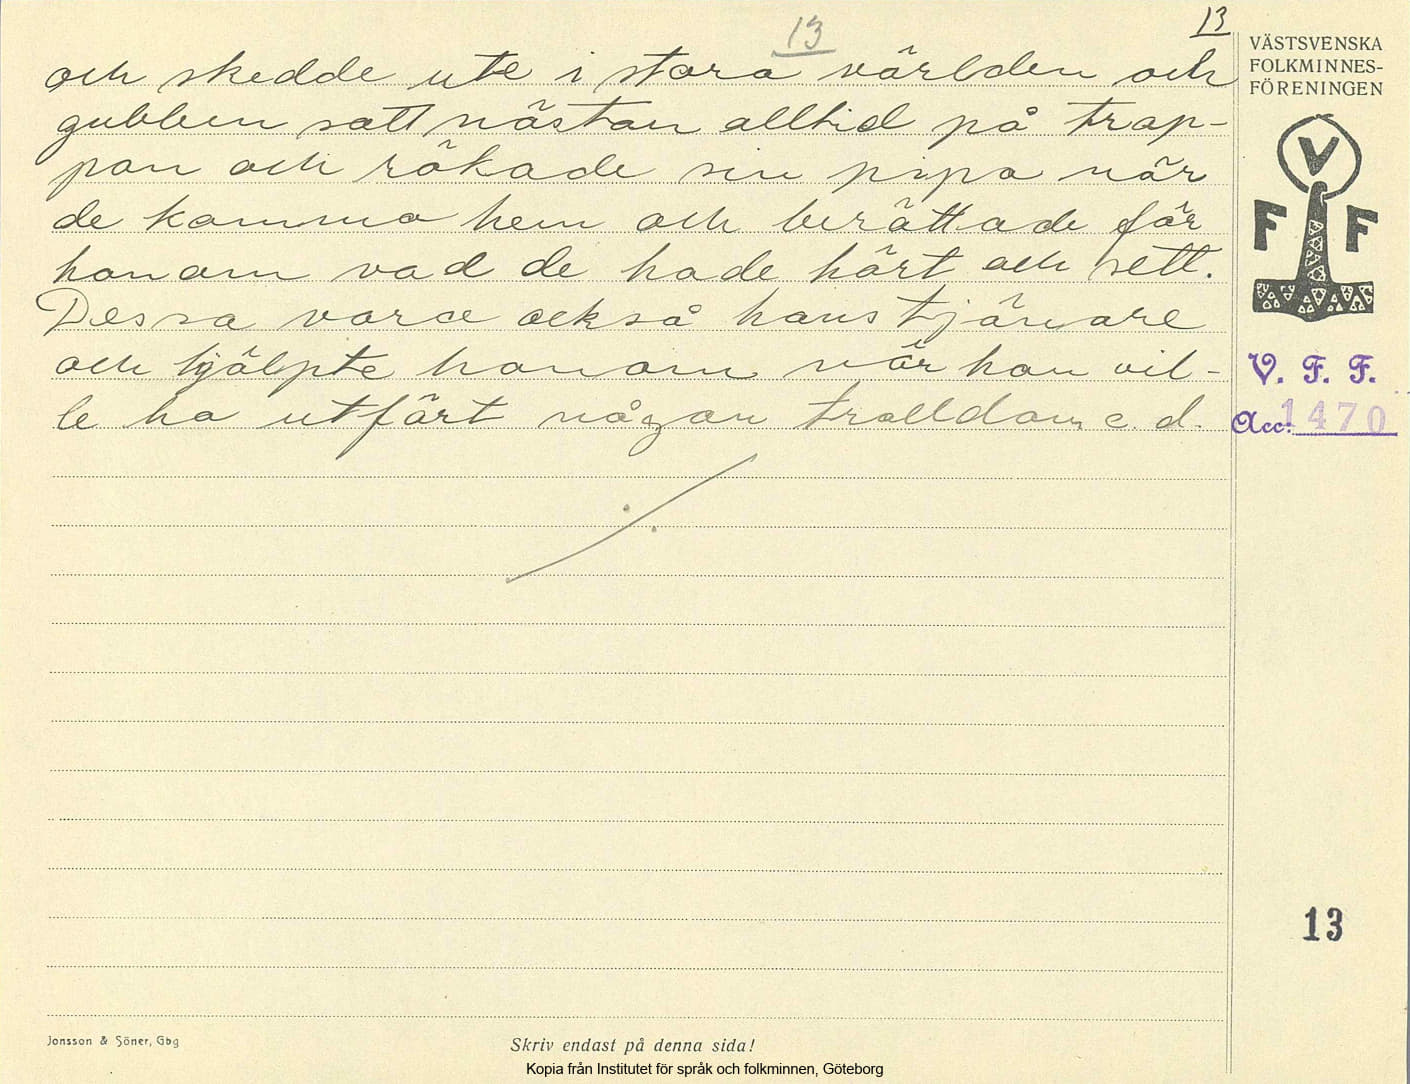 13
13
och skedde ute i stora världen och
gubben satt nästan alltid på trap-
pan och rökade sin pipa när
de komma hem och berättade för
honom vad de hade hört och sett.
Dessa voro också hans tjänare
och hjälpte honom när han vil-
le ha utfört någon trolldom e. d.
VÄSTSVENSKA
FOLKMINNES-
FÖRENINGEN
V
F F
V. F. F.
Acc: 1470
13
Jonsson & Söner, Gbg
Skriv endast på denna sida!
Kopia från Institutet för språk och folkminnen, Göteborg